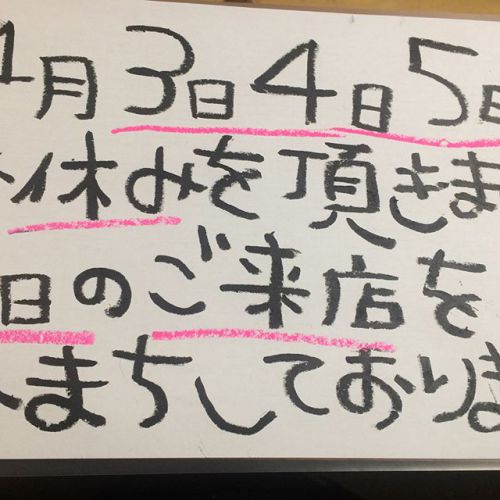 1月3日4日5日
休みを頂きま
日のご来店を
まちしておりま